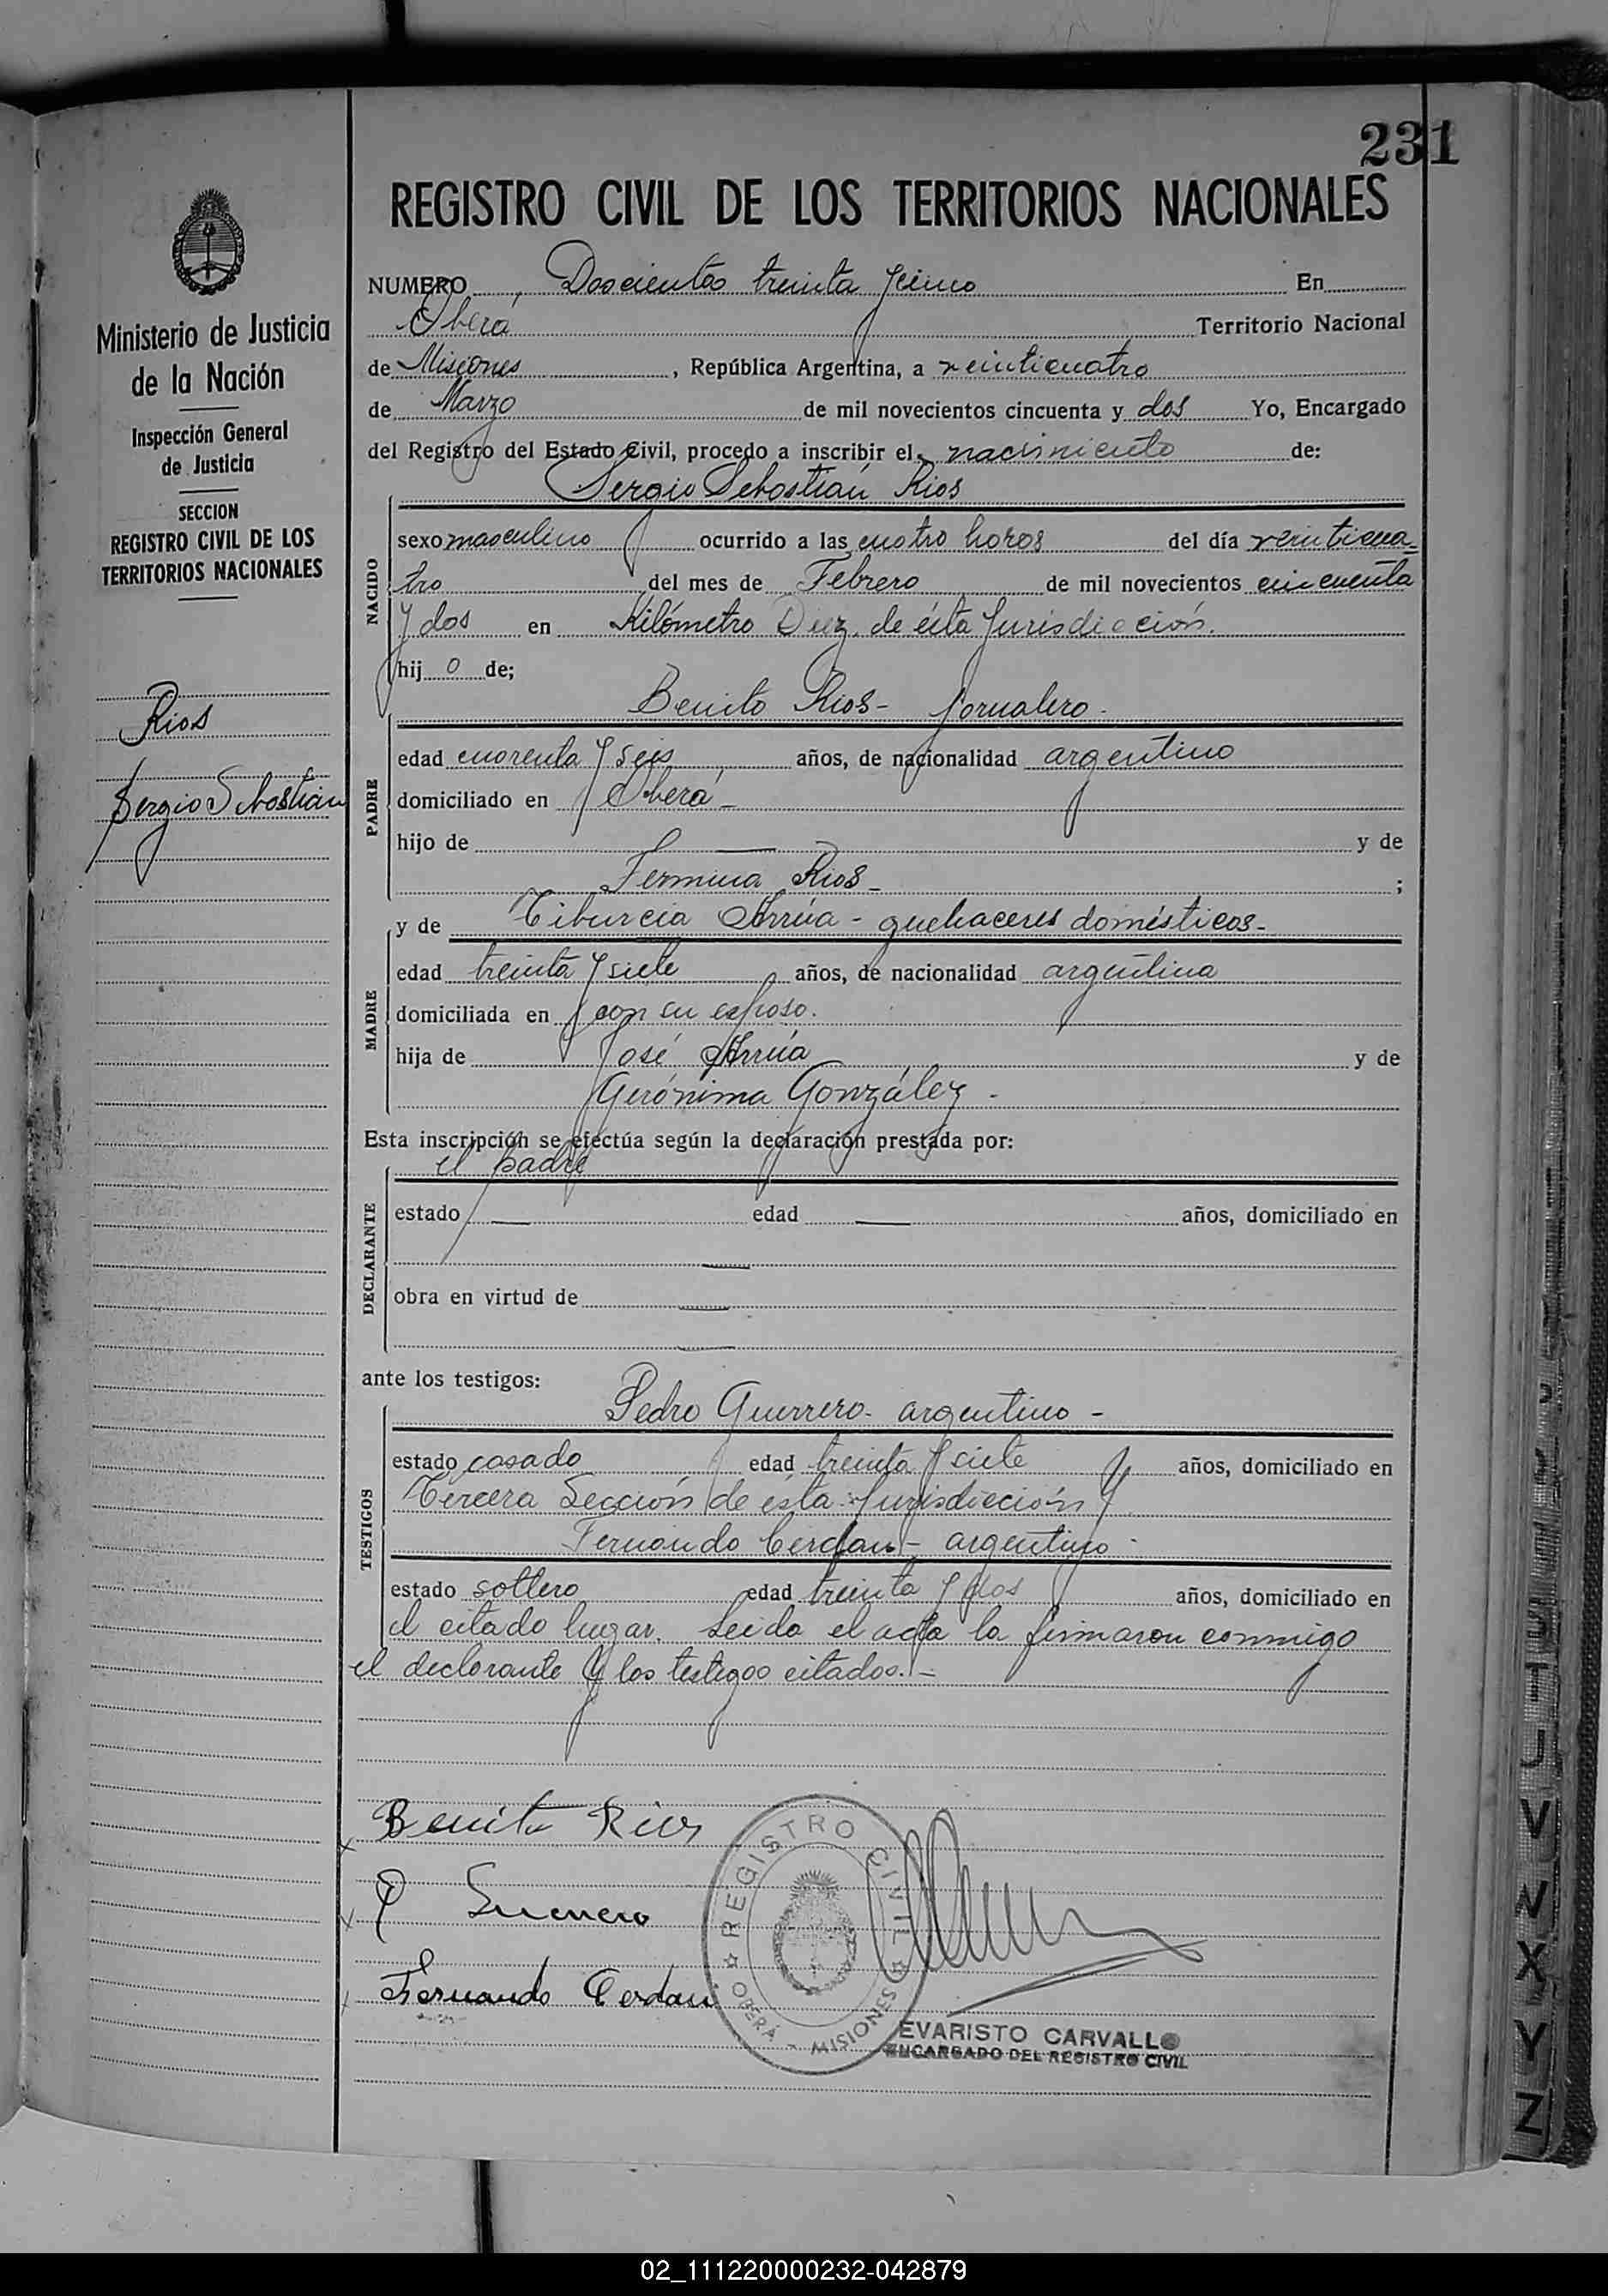 231
REGISTRO CIVIL DE LOS TERRITORIOS NACIONALES
Ministerio de Justicia
de la Nación
Inspección General
de Justicia
SECCION
REGISTRO CIVIL DE LOS
TERRITORIOS NACIONALES
Rios
Sergio Sebastián
NUMERO Doscientos treinta y uno En
Oberá Territorio Nacional
de Misiones, República Argentina, a veinticuatro
de Marzo de mil novecientos cincuenta y dos Yo, Encargado
del Registro del Estado Civil, procedo a inscribir el nacimiento de:
Sergio Sebastián Rios
NACIDO
sexo masculino ocurrido a las cuatro horas del día veinticua=
tro del mes de Febrero de mil novecientos cincuenta
y dos en Kilómetro Diez, de ésta Jurisdicción.
hij o de;
Benito Rios - Jornalero.
PADRE
edad cuarenta y seis años, de nacionalidad argentino
domiciliado en Oberá -
hijo de — y de
Fermina Rios - ;
y de Tiburcia Arrúa - quehaceres domésticos -
MADRE
edad treinta y siete años, de nacionalidad argentina
domiciliada en con su esposo.
hija de José Arrúa y de
Gerónima González -
Esta inscripción se efectúa según la declaración prestada por:
el padre
DECLARANTE
estado — edad — años, domiciliado en
—
obra en virtud de —
—
ante los testigos:
Pedro Guerrero - argentino -
TESTIGOS
estado casado edad treinta y siete años, domiciliado en
Tercera Sección de ésta Jurisdicción y
Fernando Cerdan - argentino -
estado soltero edad treinta y dos años, domiciliado en
el citado lugar. Leida el acta la firmaron conmigo
el declarante y los testigos citados. -
Benito Rios
P Guerrero
Fernando Cerdan
REGISTRO CIVIL
OBERÁ - MISIONES
EVARISTO CARVALLO
ENCARGADO DEL REGISTRO CIVIL
T
U
V
W
X
Y
Z
02_111220000232-042879